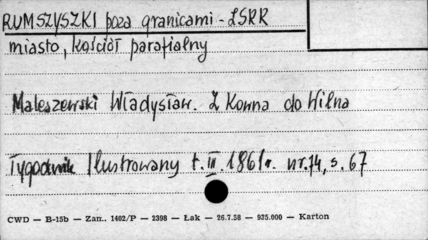 RUMSZYSZKI poza granicami - ZSRR
miasto, kościół parafialny
Maleszewski Władysław. Z Kowna do Wilna
Tygodnik Ilustrowany t. III 1861r. nr. 74, s. 67
CWD — B-15b — Zam. 1402/P — 2398 — Łak — 26.7.58 — 925.000 — Karton